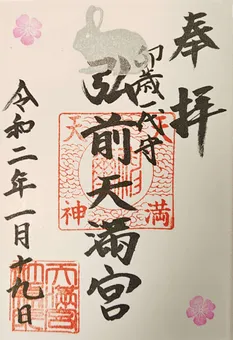 奉拝
卯歳一代守
弘前天満宮
天満
天神
令和二年一月十九日
天満宮